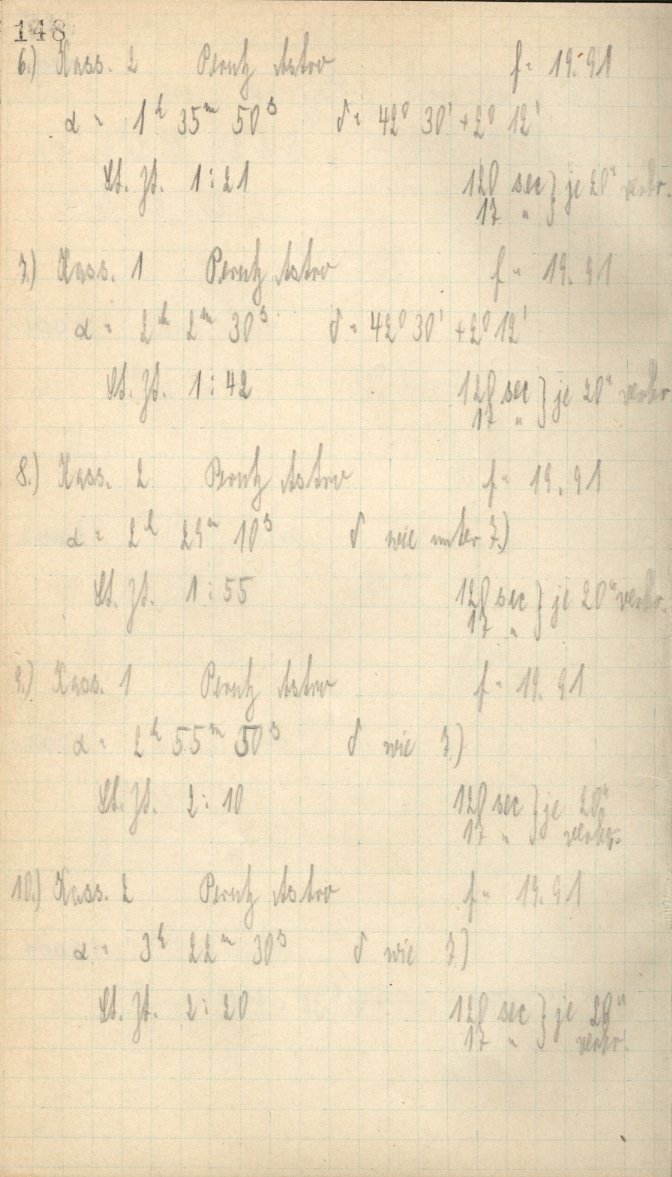 148
6.) Kass. 2 Perutz Astro f = 19.91
α = 1ʰ 35ᵐ 50ˢ δ = 42⁰ 30' + 2⁰ 12'
St. Zt. 1:21 120 sec } je 20"
17 "
7.) Kass. 1 Perutz Astro f = 19.91
α = 2ʰ 2ᵐ 30ˢ δ = 42⁰ 30' + 2⁰ 12'
St. Zt. 1:42 120 sec } je 20"
17 "
8.) Kass. 2 Perutz Astro f = 19.91
α = 2ʰ 29ᵐ 10ˢ δ wie unter 7.)
St. Zt. 1:55 120 sec } je 20"
17 "
9.) Kass. 1 Perutz Astro f = 19.91
α = 2ʰ 55ᵐ 50ˢ δ wie 7.)
St. Zt. 2:10 120 sec } je 20"
17 "
10.) Kass. 2 Perutz Astro f = 19.91
α = 3ʰ 22ᵐ 30ˢ δ wie 7.)
St. Zt. 2:20 120 sec } je 20"
17 "